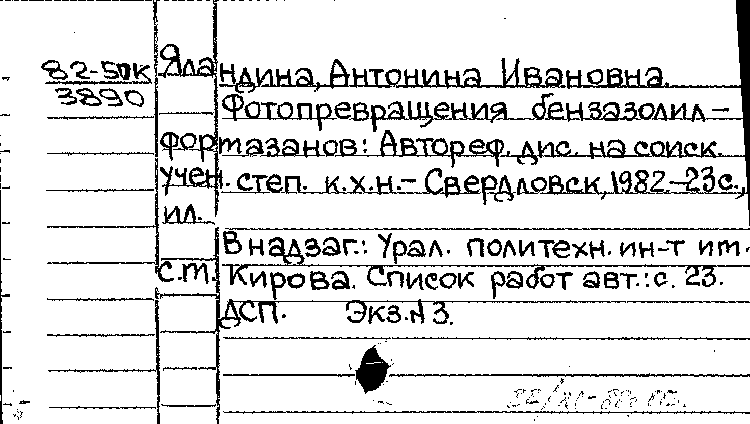 82-50К
3890
Яландина, Антонина Ивановна.
Фотопревращения бензазолил-
формазанов: Автореф. дис. на соиск.
учен. степ. к.х.н.- Свердловск, 1982.-23с.,
ил.
В надзаг.: Урал. политехн. ин-т им.
С.М. Кирова. Список работ авт.: с. 23.
ДСП. Экз.N3.